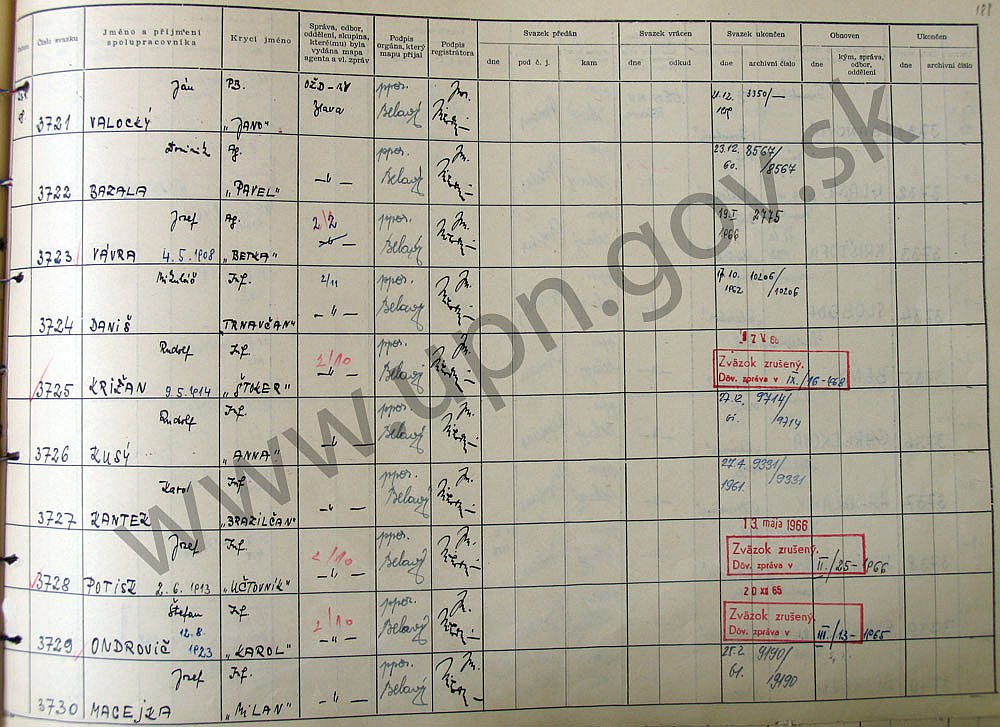 188
Číslo svazku
Jméno a příjmení spolupracovníka
Krycí jméno
Správa, odbor, oddělení, skupina, které(mu) byla vydána mapa agenta a vl. zpráv
Podpis orgána, který mapu přijal
Podpis registrátora
Svazek předán
dne
pod č. j.
kam
Svazek vrácen
dne
odkud
Svazek ukončen
dne
archivní číslo
Obnoven
dne
kým, správa, odbor, oddělení
Ukončen
dne
archivní číslo
Ján PB. OŽD-NV ppor.
3721 VALOCKÝ „JANO" Ilava Belavý 3350/—
Dominik Ag. ppor. 23.12. 8567/
3722 BAZALA „PAVEL" —„— Belavý 60. /8567
Jozef Ag. 2/2 ppor. 19.I 2775
3723 VÁVRA 4.5.1908 „BETKA" Belavý 1966
Mikuláš Inf. 2/11 ppor. 17.10. 10206
3724 DANIŠ TRNAVČAN" —„— Belavý 1962 /10206
Rudolf Inf. 2/10 ppor. 7 V 68
Zväzok zrušený.
3725 KRIŽAN 9.5.1914 „ŠTOKER" —„— Belavý Dôv. zpráva v IX./16-1968
Rudolf Inf. ppor. 27.12. 9714/
3726 KUSÝ „ANNA" —„— Belavý 61. /9714
Karol Inf ppor. 27.4. 9331/
3727 KANTEK „BRAZILČAN" —„— Belavý 1961. /9331
13. mája 1966
Jozef Inf. 2/10 ppor. Zväzok zrušený.
3728 POTISK 2.6.1913 „ÚČTOVNÍK" —„— Belavý Dôv. zpráva v II./25-1966
20 XII 65
Štefan Inf. 2/10 ppor. Zväzok zrušený.
3729 ONDROVIČ 12.8. 1923 „KAROL" —„— Belavý Dôv. zpráva v III./13-1965
Jozef Inf. ppor. 25.2. 9190/
3730 MACEJKA „MILAN" —„— Belavý 61. /9190
www.upn.gov.sk